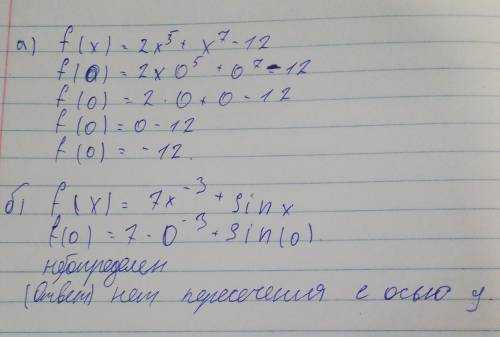 а) f(x) = 2x⁵ + x⁷ - 12
f(0) = 2x0⁵ + 0⁷ - 12
f(0) = 2 · 0 + 0 - 12
f(0) = 0 - 12
f(0) = - 12.
б) f(x) = 7x⁻³ + sin x
f(0) = 7 · 0⁻³ + sin(0)
неопределен
(Ответ) нет пересечения с осью y.